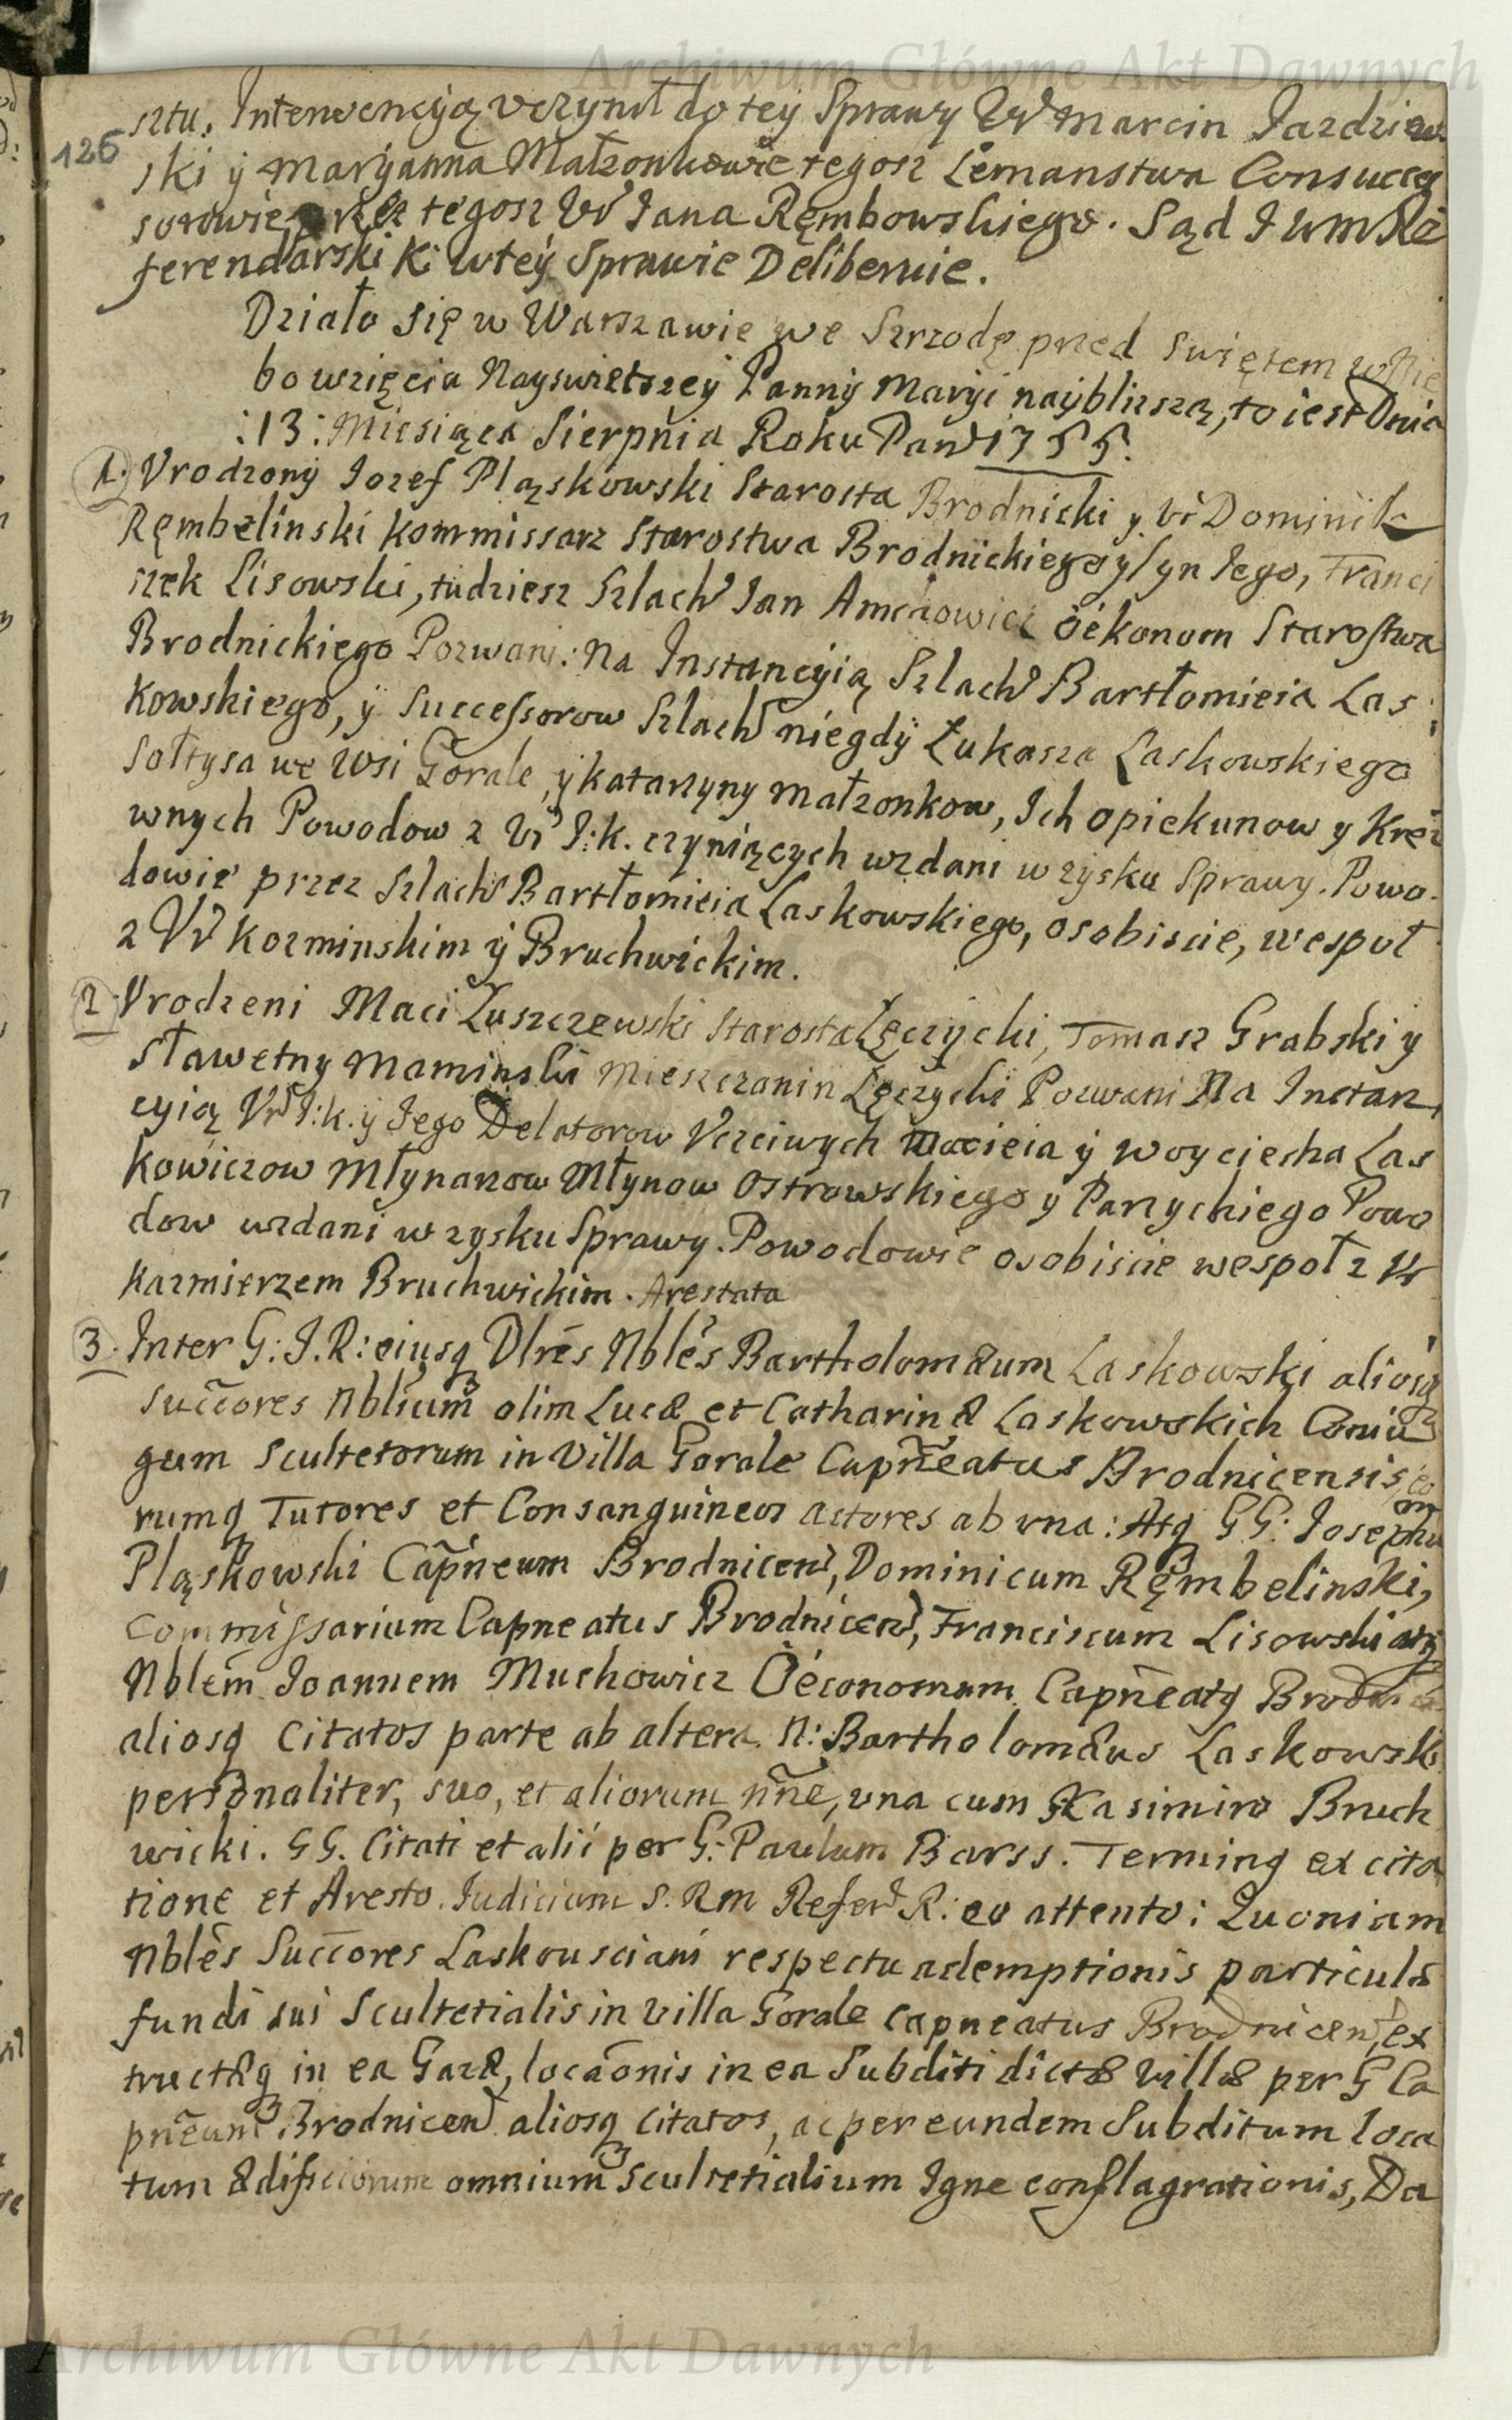 Archiwum Główne Akt Dawnych
126
sztu, Intervencyią vczynił do tey Sprawy Vr Marcin Jazdzew-
ski ÿ Maryanna Małzonkowie tegosz Lemanstwa Consucces
sorowie, przez tegosz Vr Jana Rembowskiego. Sąd J K Mci Re
ferendarski K: w tey Sprawie Deliberuie.
Działo się w Warszawie we Szrzodę przed Swiętem w Nie
bo wzięcia Nayswietszey Panny Maryi nayblizszą, to iest Dnia
:13: Miesiąca Sierpnia Roku Pan 1755.
1. Vrodzony Jozef Pląskowski Starosta Brodnicki y Vr Dominik
Rębelinski Kommissarz Starostwa Brodnickiego y Syn Jego, Franci
szek Lisowski, tudziesz Szlach Jan Oekonom Starostwa
Brodnickiego Pozwani: Na Instancyią Szlach Bartłomieia Las
kowskiego, ÿ Successorow Szlach niegdÿ Łukasza Laskowskiego
Sołtysa we Wsi Gorale, y Katarzyny Małzonkow, Ich opiekunow y Kre
wnych Powodow z Vr J:K. czyniących wzdani w zysku Sprawy. Powo
dowie przez Szlach Bartłomieia Laskowskiego, osobiscie, wespoł
z Vr Kozminskim ÿ Bruchwickim.
2. Vrodzeni Maci Łuszczewski Starosta Łęczycki, Tomasz Grabski y
Sławetny Maminski Mieszczanin Łęczycki Pozwani Na Instan
cyią Vr J:K. ÿ Jego Delatorow Vczciwych Macieia ÿ Woyciecha Las
kowiczow Młynarzow Młynow Ostrowskiego y Parzychiego Powo
dow wzdani w zysku Sprawy. Powodowie osobiscie wespoł z Vr
Kazmierzem Bruchwickim. Arestata
3. Inter G: J. R: eiusq Dlres Nbles Bartholomæum Laskowski aliosq
Succores Nblium olim Lucæ et Catharinæ Laskowskich Coniu
gum Scultetorum in Villa Gorale Capneatus Brodnicensis eo
rumq Tutores et Consanguineos actores ab vna: Atq GG: Josephum
Pląskowski Capneum Brodnicen, Dominicum Rębelinski,
Commissarium Capneatus Brodnicen, Franciscum Lisowski atq
Nblem Joannem Muchowicz Oeconomum Capneatq Brodnicen
aliosq Citatos parte ab altera. N: Bartholomæus Laskowski
personaliter, suo, et aliorum nne, vna cum G Kasimiro Bruch
wicki. GG. Citati et alii per G: Paulum Barss. Terminq ex cita
tione et Aresto. Judicium S. R M Refer R: eo attento: Quoniam
Nbles Succores Laskousciani respectu ademptionis particulæ
fundi sui Scultetialis in villa Gorale Capneatus Brodnicen, ex
tructæq in ea Gazæ, locaonis in ea Subditi dictæ Villæ per G Ca
pneum Brodnicen aliosq Citatos, ac per eundem Subditum loca
tum ædificiorum omnium Scultetialium Igne conflagrationis, Da
Archiwum Główne Akt Dawnych